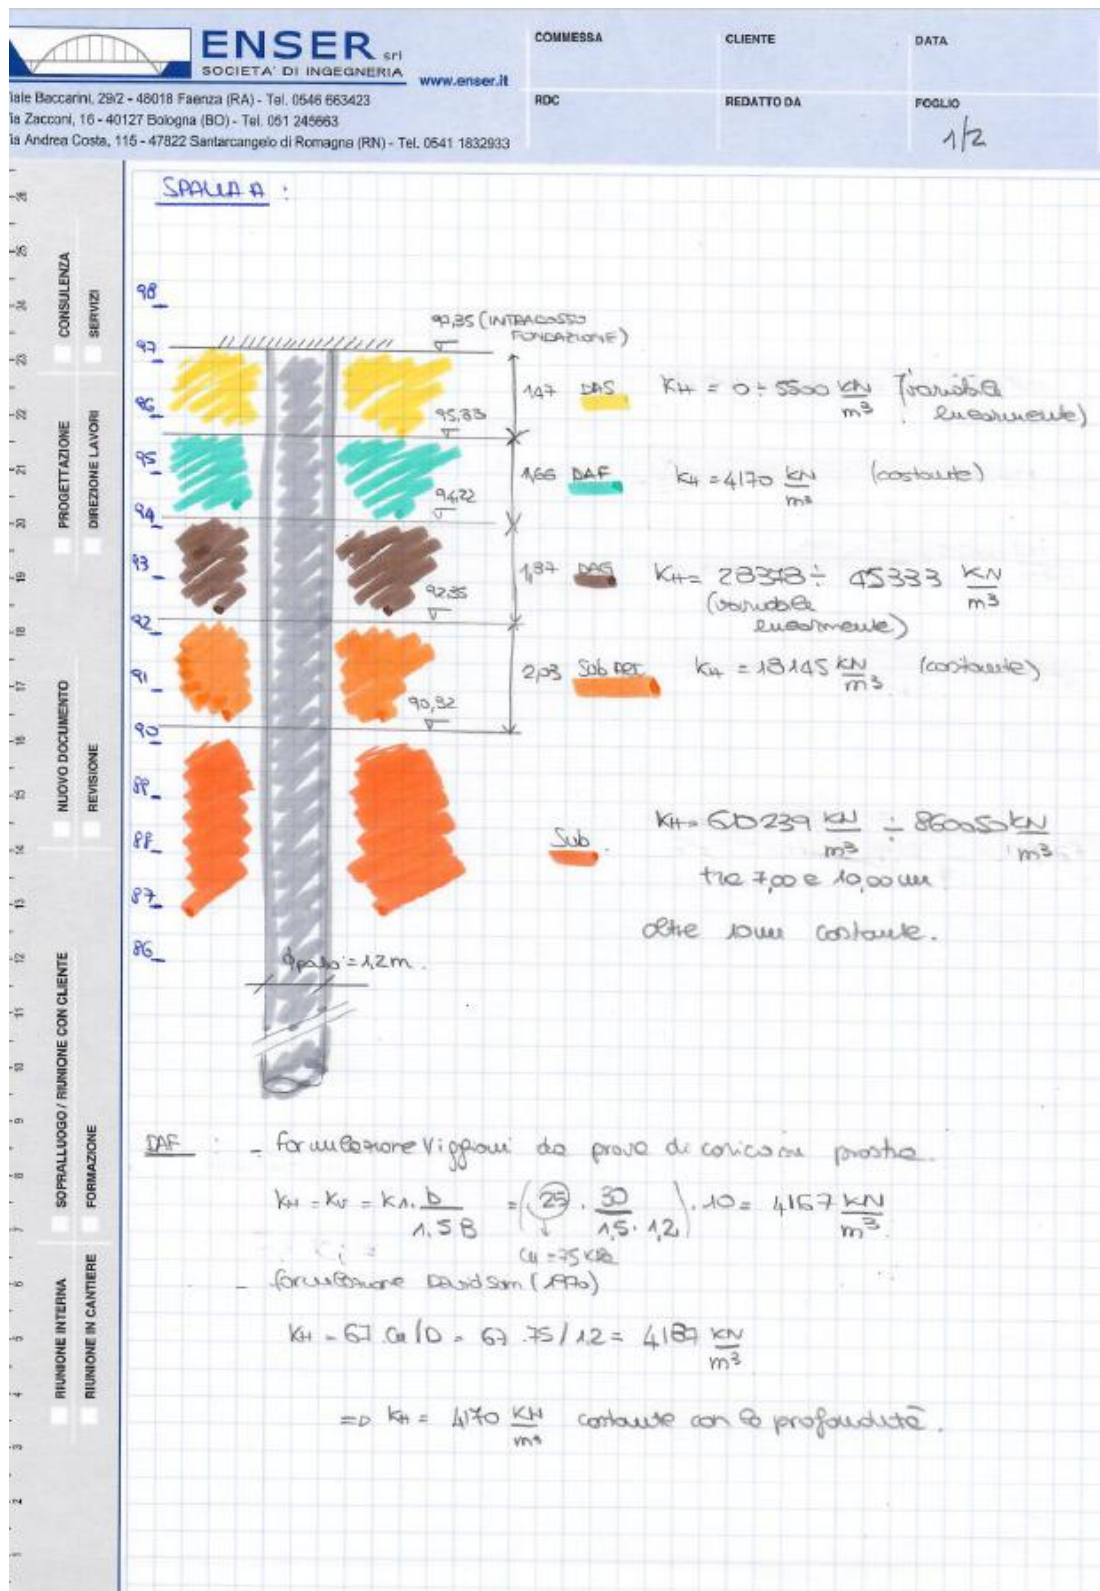 ENSER srl
SOCIETA' DI INGEGNERIA
www.enser.it
iale Baccarini, 29/2 - 48018 Faenza (RA) - Tel. 0546 663423
ia Zacconi, 16 - 40127 Bologna (BO) - Tel. 051 245663
ia Andrea Costa, 115 - 47822 Santarcangelo di Romagna (RN) - Tel. 0541 1832933
COMMESSA
CLIENTE
DATA
RDC
REDATTO DA
FOGLIO
1/2
CONSULENZA
SERVIZI
PROGETTAZIONE
DIREZIONE LAVORI
NUOVO DOCUMENTO
REVISIONE
SOPRALLUOGO / RIUNIONE CON CLIENTE
FORMAZIONE
RIUNIONE INTERNA
RIUNIONE IN CANTIERE
26
25
24
23
22
21
20
19
18
17
16
15
14
13
12
11
10
9
8
7
6
5
4
3
2
1
SPALLA A :
98
97
96
95
94
93
92
91
90
89
88
87
86
97,35 (INTRADOSSO
FONDAZIONE)
95,88
94,22
92,35
90,32
1,47 DAS KH = 0 ÷ 5500 kN/m³ (variabile
linearmente)
1,66 DAF KH = 4170 kN/m³ (costante)
1,87 DAG KH = 28378 ÷ 45333 kN/m³
(variabile
linearmente)
2,03 Sub AEC KH = 18145 kN/m³ (costante)
Sub KH = 60239 kN/m³ ÷ 86005 kN/m³
tra 7,00 e 10,00 m
oltre 10m costante.
Φpalo = 1,2m.
DAF : - formulazione Viggiani da prove di carico su piastra.
KH = KV = K1 . b / 1.5 B = ( 25 . 30 / 1,5 . 1,2 ) . 10 = 4167 kN/m³
Cu = 75 KPa
- formulazione Davidson (1970)
KH = 67 Cu/D = 67 . 75 / 1.2 = 4187 kN/m³
=> KH = 4170 kN/m³ costante con la profondità.